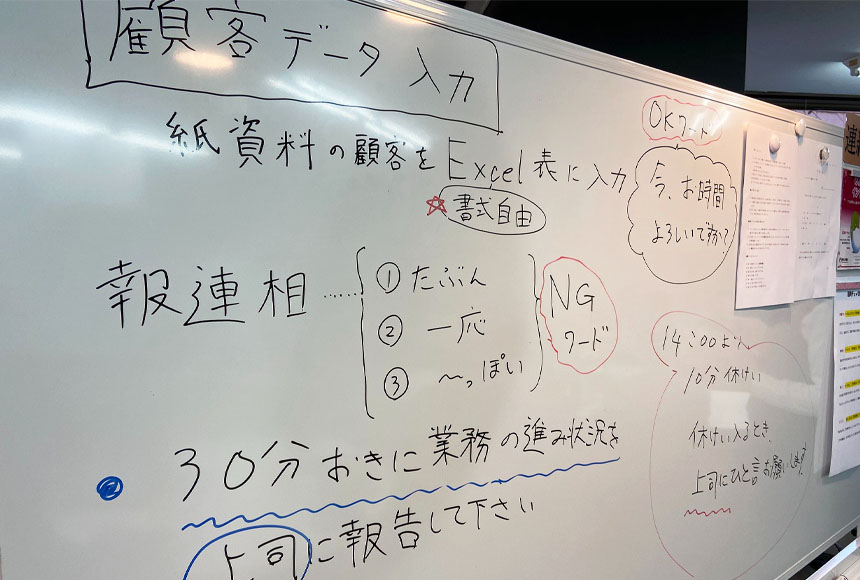 顧客データ入力
紙資料の顧客をExcel表に入力
☆書式自由
OKワード
今、お時間
よろしいですか?
報連相……
①たぶん
②一応
③〜っぽい
NG
ワード
14:00より
10分休けい
休けい入るとき、
上司にひと言お願いします
30分おきに業務の進み状況を
上司に報告して下さい